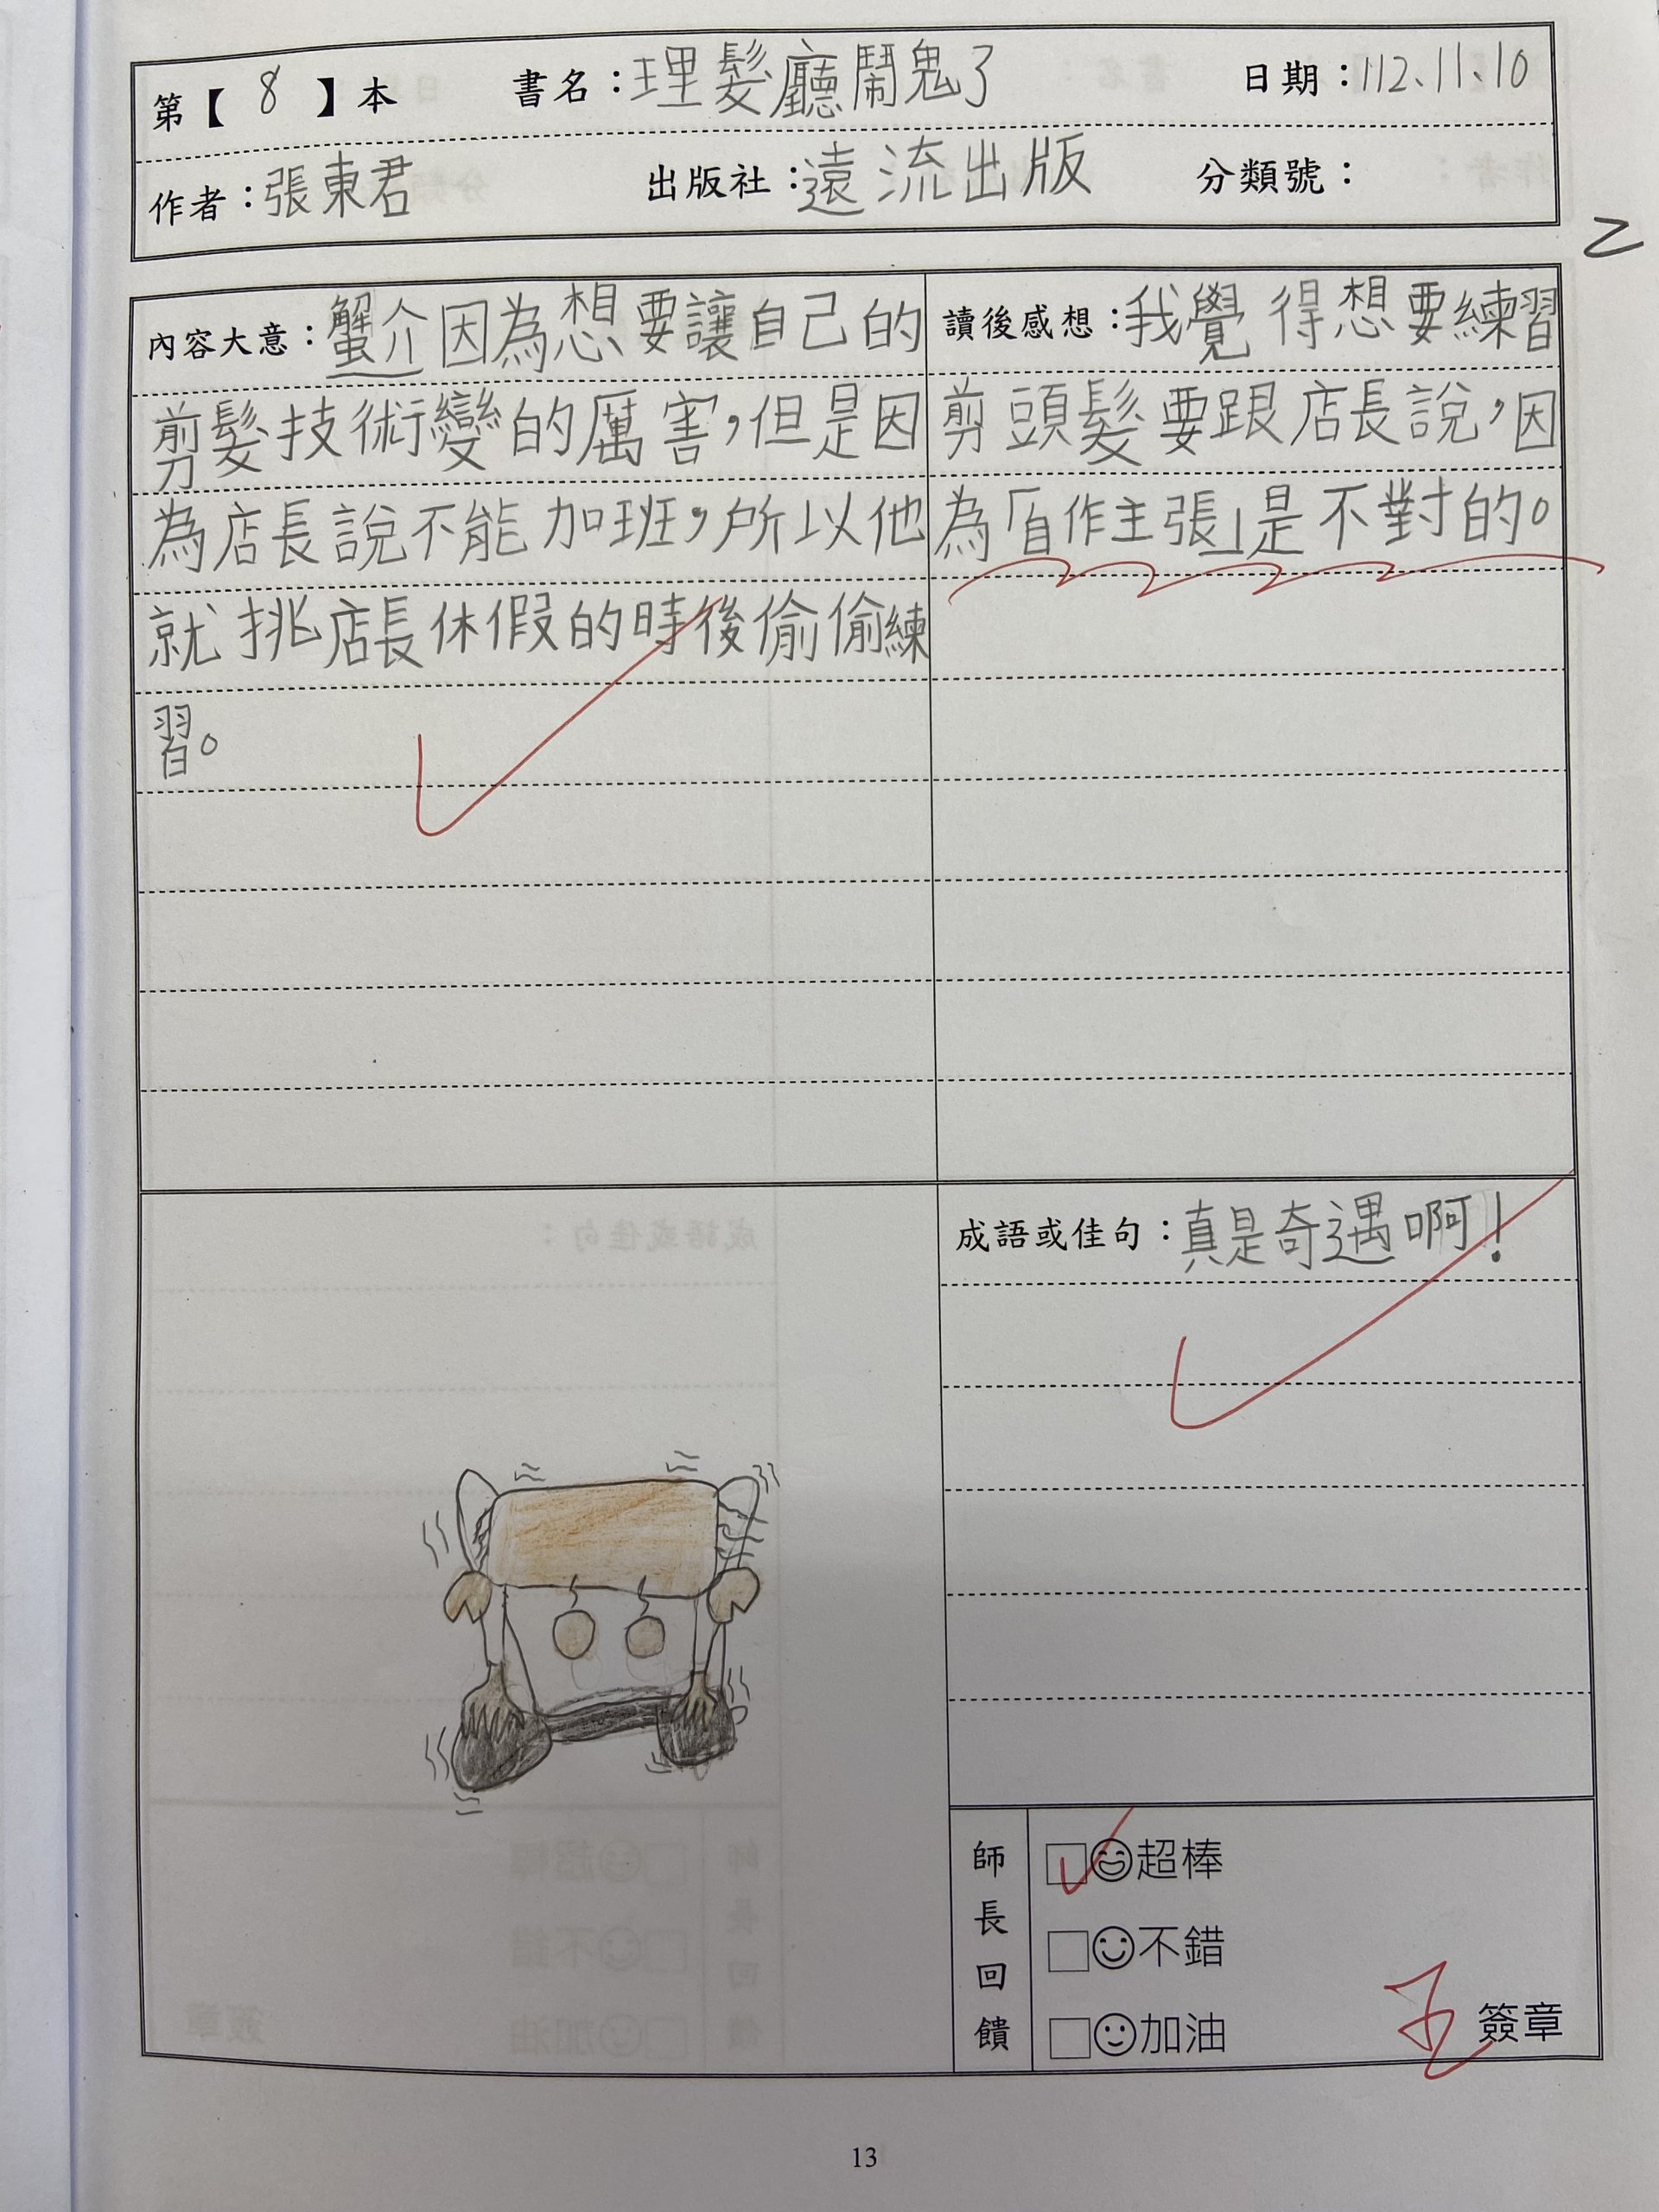 第【 8 】本 書名：理髮廳鬧鬼了 日期：112.11.10
作者：張東君 出版社：遠流出版 分類號：
乙
內容大意：蟹介因為想要讓自己的
剪髮技術變的厲害，但是因
為店長說不能加班，所以他
就挑店長休假的時後偷偷練
習。
讀後感想：我覺得想要練習
剪頭髮要跟店長說，因
為「自作主張」是不對的。
成語或佳句：真是奇遇啊！
師長回饋
超棒
不錯
加油
簽章
13